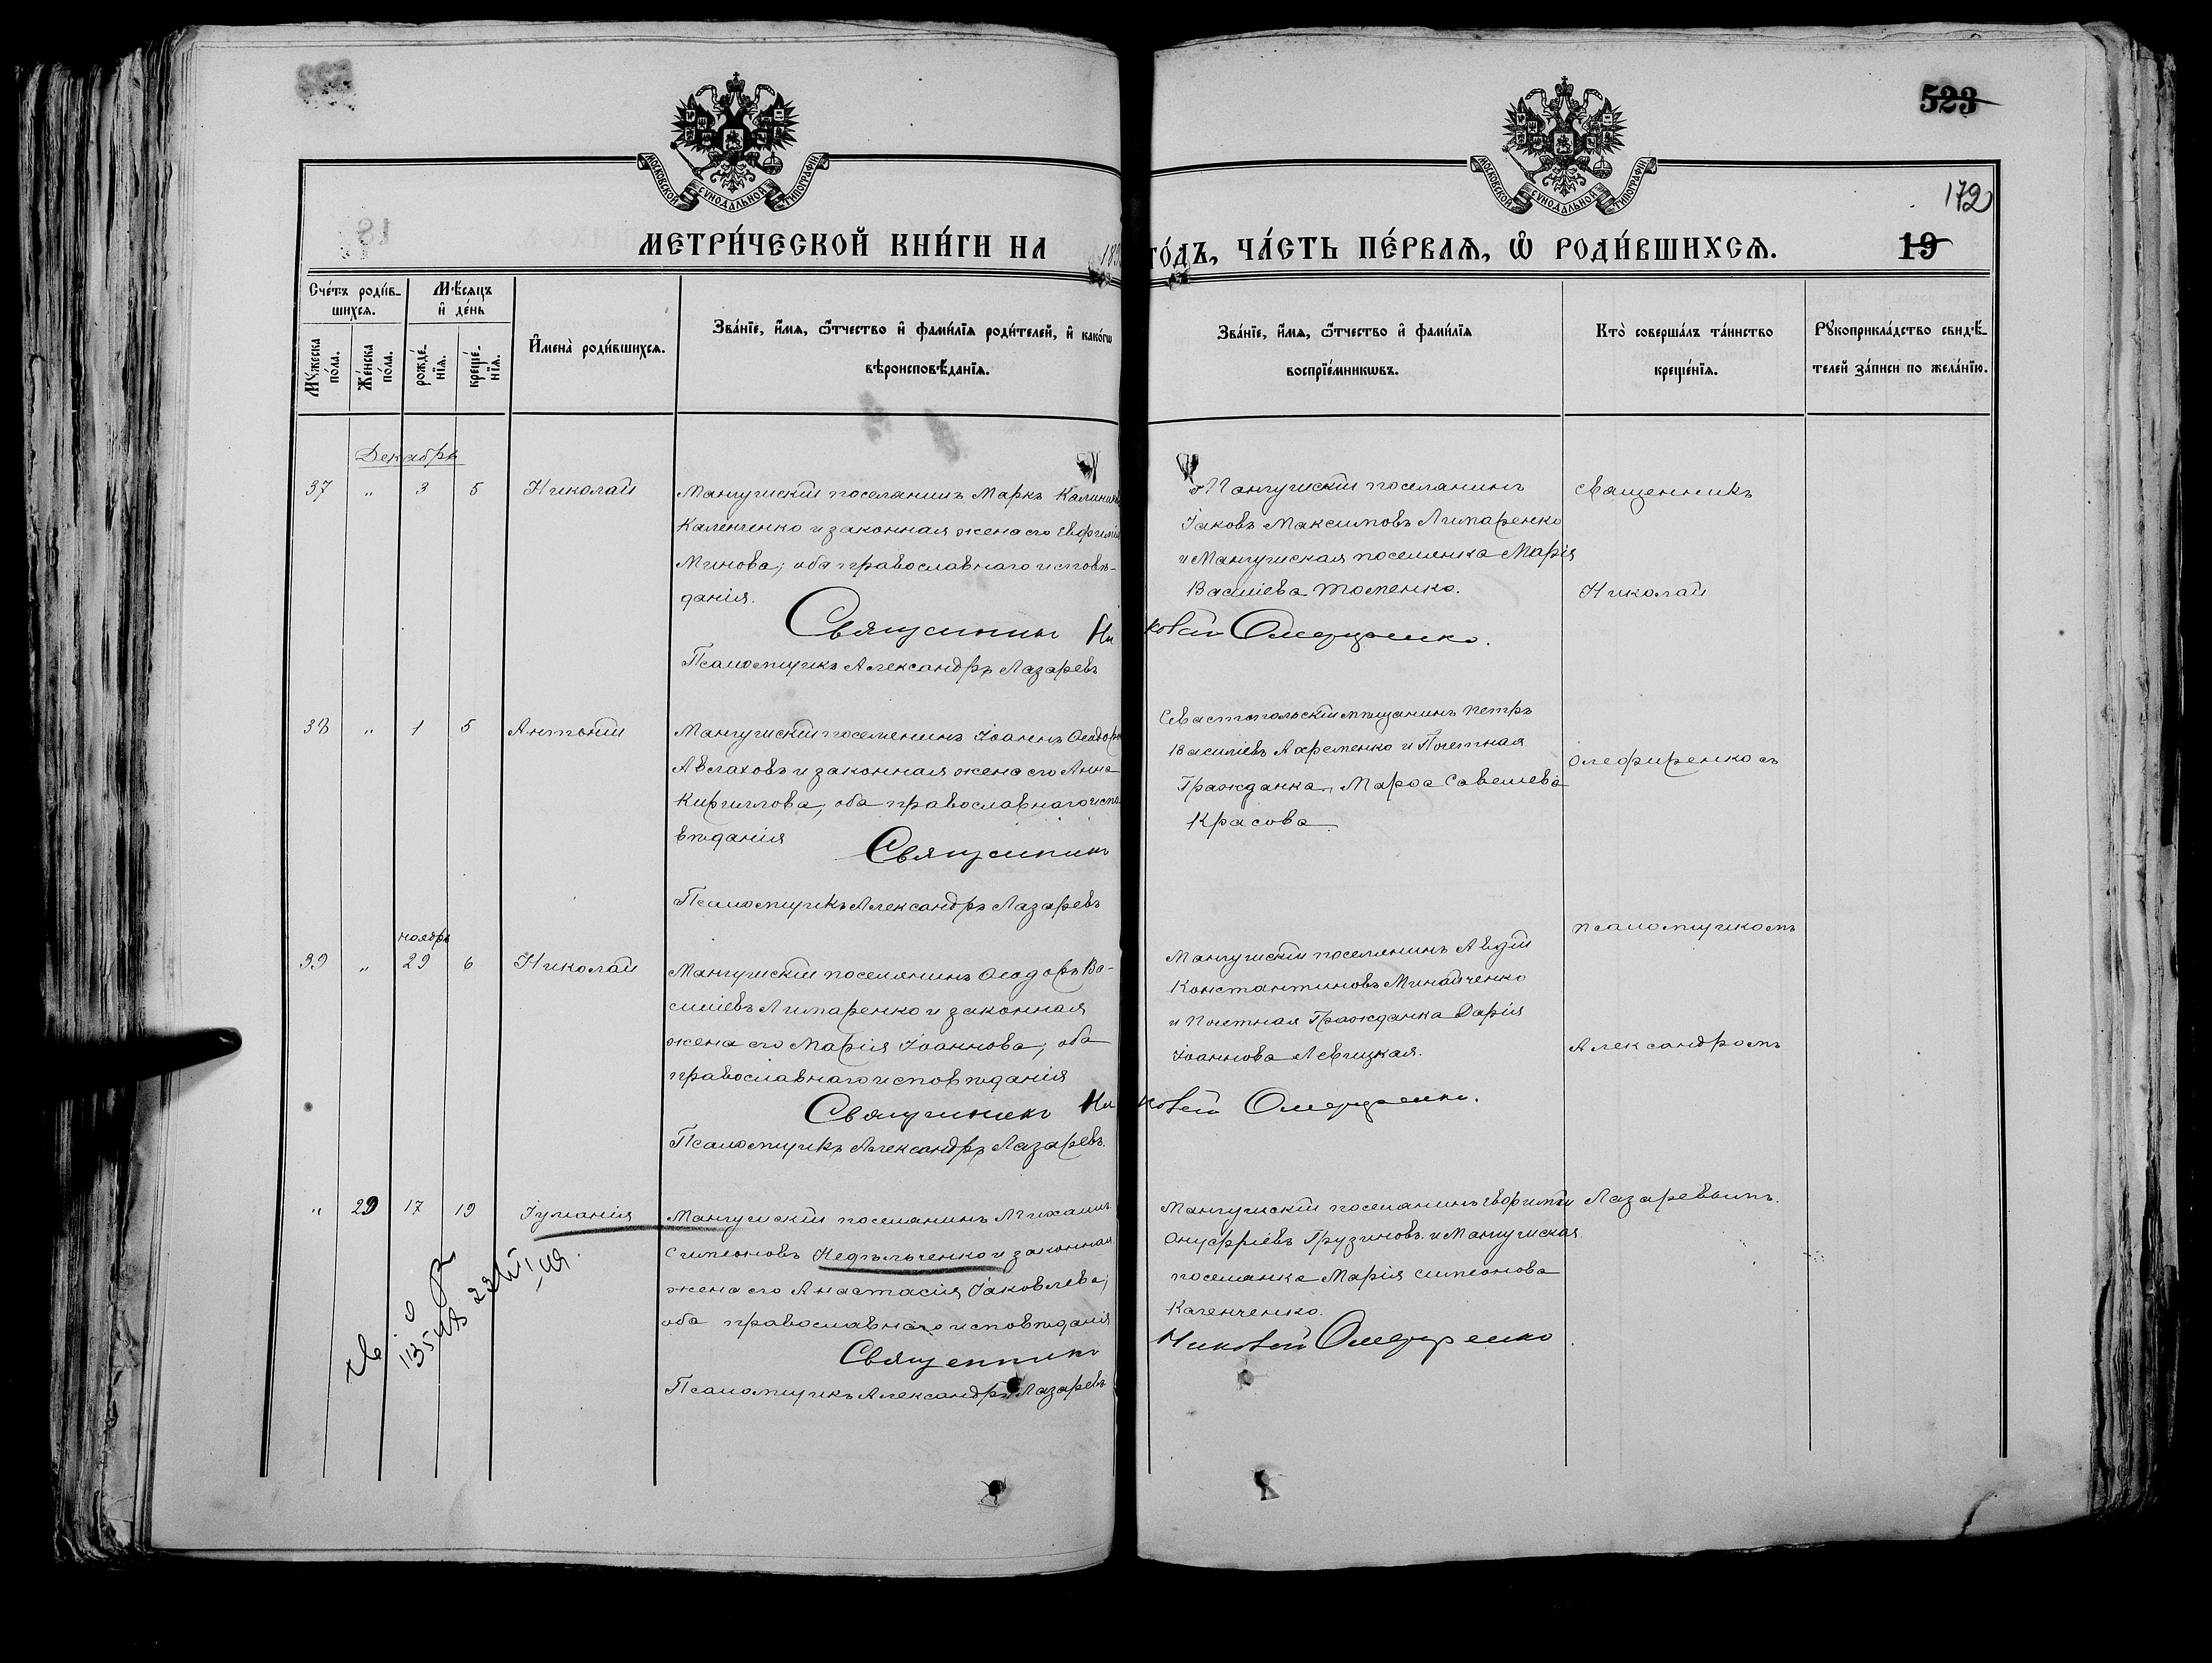 523
МОСКОВСКОЙ СѴНОДАЛЬНОЙ ТИПОГРАФІИ
МОСКОВСКОЙ СѴНОДАЛЬНОЙ ТИПОГРАФІИ
172
МЕТРИ́ЧЕСКОЙ КНИ́ГИ НА 189
ГО́ДЪ, ЧА́СТЬ ПЕ́РВАѦ, Ѡ҆ РОДИ́ВШИХСѦ.
19
Сче́тъ роди́в-
шихсѧ.
Мꙋ́жеска по́ла.
Же́нска по́ла.
Мѣ́сѧцъ и҆ де́нь
рожде́-нїѧ.
креще́-нїѧ.
И҆мена̀ роди́вшихсѧ.
Зва́нїе, и҆́мѧ, ѻ҆́тчество и҆ фами́лїѧ роди́телей, и҆ како́гѡ
вѣроисповѣ́данїѧ.
Зва́нїе, и҆́мѧ, ѻ҆́тчество и҆ фами́лїѧ
воспрїе́мникѡвъ.
Кто̀ соверша́лъ та́инство
креще́нїѧ.
Рꙋкоприкла́дство свидѣ́-
телей за́писи по жела́нїю.
Декабрь
37 " 3 5 Николай
Мангушскій поселянинъ Маркъ Калинин
Каленченко и законная жена его Евфимія
Минова; оба православнаго исповѣ-
данія.
Священникъ Ни
Псаломщикъ Александръ Лазаревъ
Мангушскій поселянинъ
Іаковъ Максимовъ Липаренко
и Мангушская поселянка Марія
Василіева Томенко.
колай Олефиренко.
Священникъ
Николай
38 " 1 5 Антоній
Мангушскій поселянинъ Іоаннъ Ѳеодоро
Авлаховъ и законная жена его Анна
Кириллова, оба православнаго испо
вѣданія
Священникъ
Псаломщикъ Александръ Лазаревъ
Севастопольскій мѣщанинъ Петръ
Василіевъ Ахременко и Почетная
Гражданка Марѳа Савелиева
Красова
Олефиренко съ
ноября
39 " 29 6 Николай
Мангушскій поселянинъ Ѳеодоръ Ва-
силіевъ Липаренко и законная
жена его Марія Іоаннова; оба
православнаго исповѣданія
Священникъ Ни
Псаломщикъ Александръ Лазаревъ.
Мангушскій поселянинъ Авдій
Константиновъ Минайченко
и Почетная Гражданка Дарія
Іоаннова Левицкая.
колай Олефиренко.
псаломщикомъ
Александромъ
" 29 17 19 Іуліанія
Мангушскій поселянинъ Михаилъ
Симеоновъ Недѣльченко и законная
жена его Анастасія Іаковлева;
оба православнаго исповѣданія
Священникъ
Псаломщикъ Александръ Лазаревъ
Мангушскій поселянинъ Евфимій
Онуфріевъ Грузиновъ и Мангушская
поселянка Марія Симеонова
Каленченко.
Николай Олефиренко
Лазаревымъ.